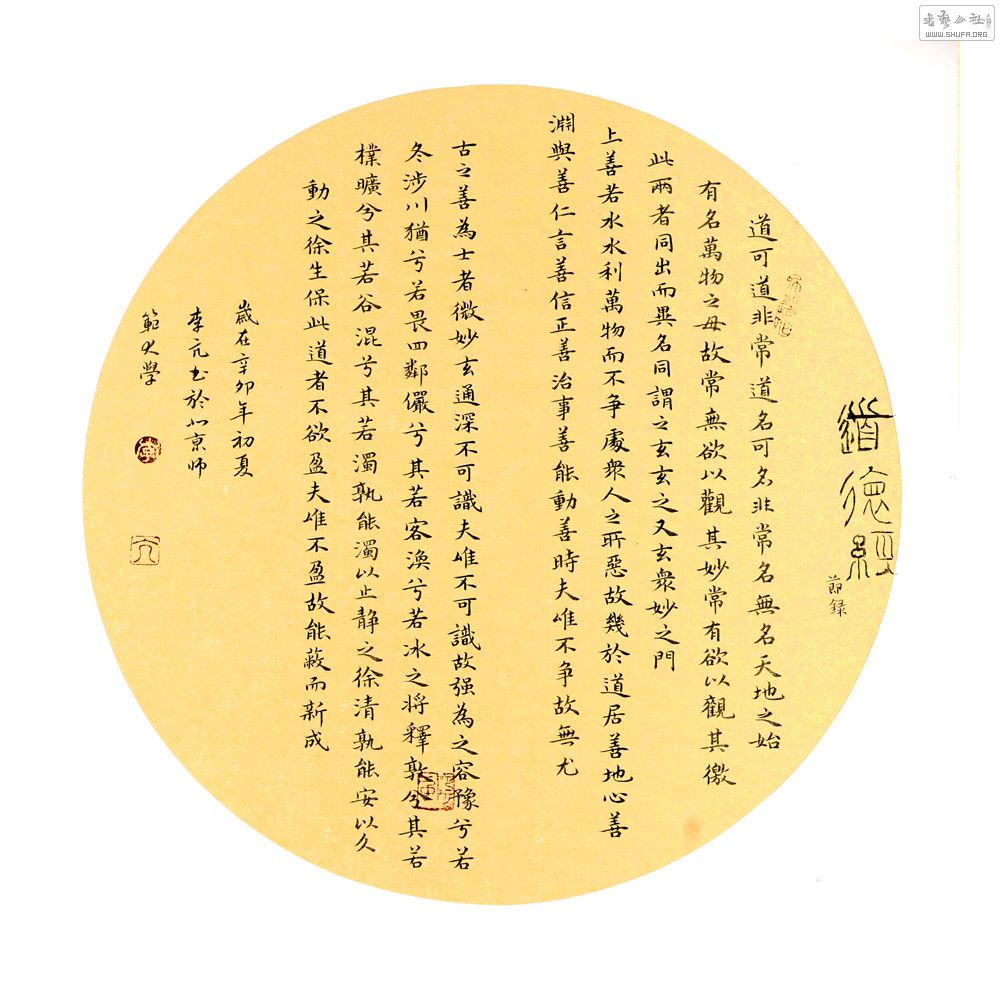 道德經
節錄
道可道非常道名可名非常名無名天地之始
有名萬物之母故常無欲以觀其妙常有欲以觀其徼
此兩者同出而異名同謂之玄玄之又玄衆妙之門
上善若水水利萬物而不争處衆人之所惡故幾於道居善地心善
淵與善仁言善信正善治事善能動善時夫唯不争故無尤
古之善為士者微妙玄通深不可識夫唯不可識故强為之容豫兮若
冬涉川猶兮若畏四鄰儼兮其若客渙兮若冰之將釋敦兮其若
樸曠兮其若谷混兮其若濁孰能濁以止静之徐清孰能安以久
動之徐生保此道者不欲盈夫唯不盈故能蔽而新成
歲在辛卯年初夏
李亢书於北京师
範大学
書藝公社
WWW.SHUFA.ORG